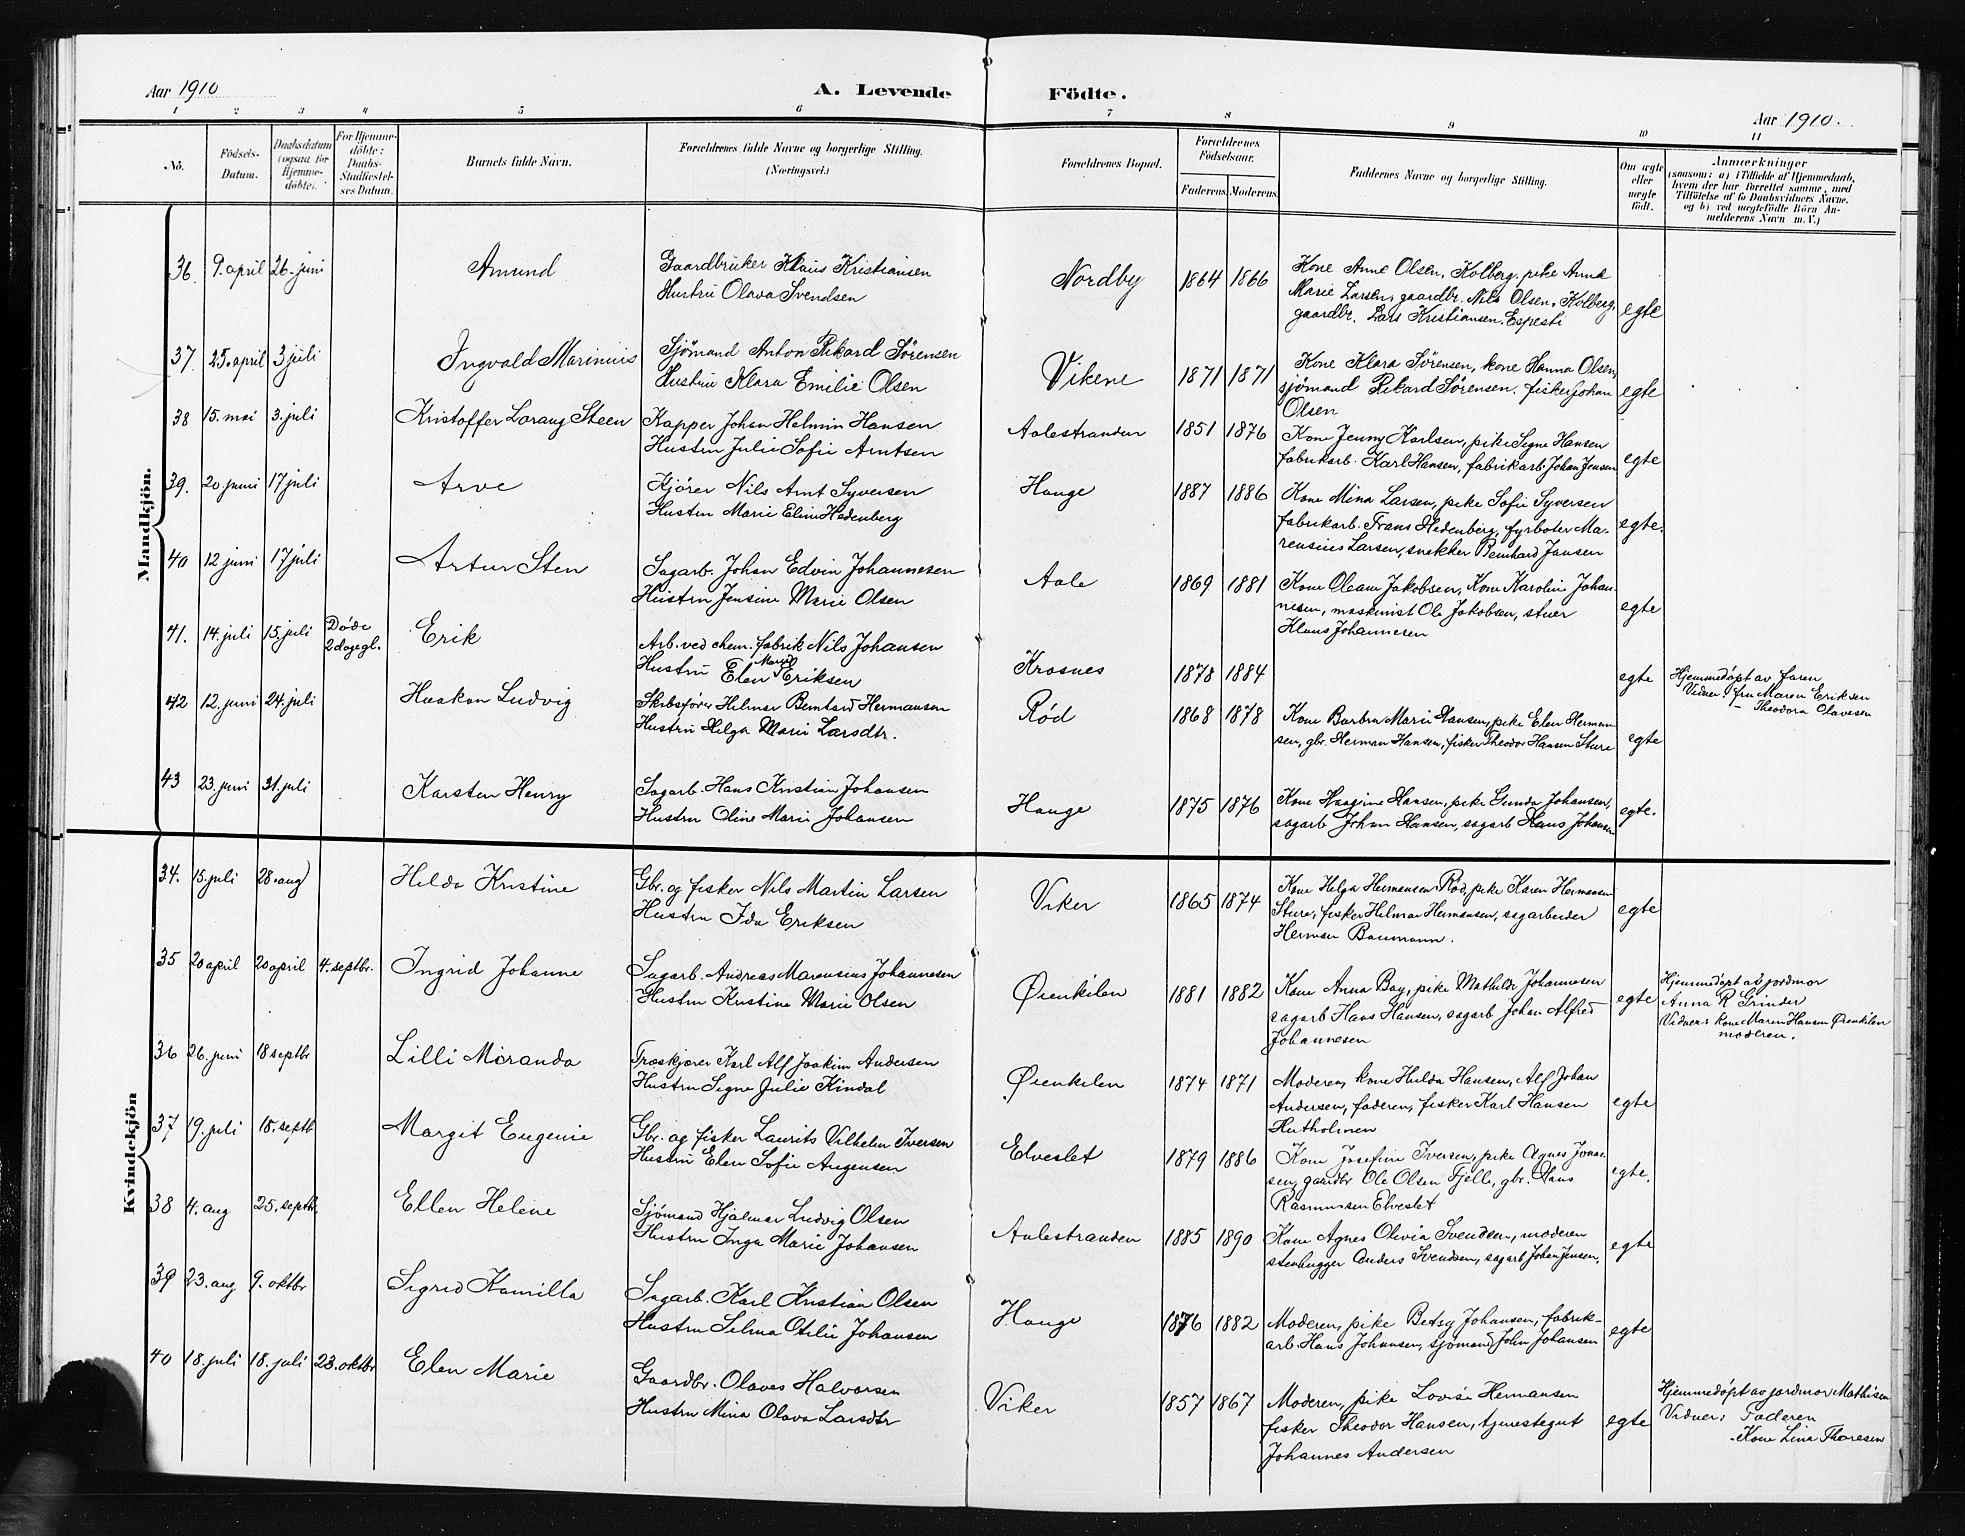 Aar 1910
A. Levende Födte.
Aar 1910.
1 2 3 4 5 6 7 8 9 10 11
No.
Födsels-
Datum.
Daabsdatum
(ogsaa for
Hjemme-
döbte).
For Hjemme-
döbte:
Daabs-
Stadfæstel-
ses Datum.
Barnets fulde Navn.
Forældrenes fulde Navne og borgerlige Stilling.
(Næringsvei.)
Forældrenes Bopæl.
Forældrenes
Födselsaar.
Faderens. Moderens.
Faddernes Navne og borgerlige Stilling.
Om ægte
eller
uægte
født.
Anmærkninger
(saasom: a) i Tilfælde af Hjemmedaab,
hvem der har forrettet samme, med
Tilföielse af to Daabsvidners Navne.
og b) ved uægtefödte Börn An-
melderens Navn m. V.)
Mandkjön.
36. 9. april 26. juni Amund
Gaardbruker Klaus Kristiansen
Hustru Olava Svendsen
Nordby 1864 1866
Kone Anne Olsen, Kolberg, pike Anna
Marie Larsen, gaardbr. Nils Olsen, Kolberg,
gaardbr. Lars Kristiansen, Espesti
egte
37. 25. april 3 juli Ingvald Marinius
Sjömand Anton Rikard Sørensen
Hustru Klara Emilie Olsen
Vikene 1871 1871
Kone Klara Sørensen, kone Hanna Olsen,
sjömand Rikard Sørensen, fisker Johan
Olsen
egte
38 15. mai 3. juli Kristoffer Lorang Steen
Kapper Johan Helmin Hansen
Hustru Julie Sofie Arntsen
Aalestranden 1851 1876
Kone Jenny Karlsen, pike Signe Hansen
fabrikarb. Karl Hansen, fabrikarb. Johan Jensen
egte
39. 20 juni 17 juli Arve
Kjører Nils Arnt Syversen
Hustru Marie Eline Hedenberg
Hauge 1887 1886
Kone Mina Larsen, pike Sofie Syversen
fabrikarb. Frans Hedenberg, fyrbøter Ma-
rensius Larsen, snekker Bernhard Jansen
egte.
40 12 juni 17 juli Artur Sten
Sagarb. Johan Edvin Johannesen
Hustru Jensine Marie Olsen
Aale 1869 1881
Kone Oleane Jakobsen, Kone Karoline Johan-
nesen, maskinist Ole Jakobsen, stuer
Klaus Johannesen
egte
41. 14. juli 15. juli Døde
2 dage gl.
Erik
Arb. ved chem. fabrik Nils Johansen
Hustru Elen Marie Eriksen
Krosnes 1878 1884
egte
Hjemmedøpt av faren
Vidner: fru Maren Eriksen
– Theodora Olavesen
42 12. juni 24. juli Haakon Ludvig
Skibsfører Helmer Berntard Hermansen
Hustru Helga Marie Larsdtr.
Rød 1868 1878
Kone Barbra Marie Hansen, pike Elen Herman-
sen, gbr. Herman Hansen, fisker Theodor Hansen Sture
egte
43 23. juni 31. juli Karsten Henry
Sagarb. Hans Kristian Johansen
Hustru Oline Marie Johansen
Hauge 1875 1876
Kone Haagine Hansen, pike Gunda Johansen,
sagarb Johan Hansen, sagarb Hans Johansen
egte.
Kvindekjön
34. 15. juli 28. aug Hilda Kristine
Gbr. og fisker Nils Martin Larsen
Hustru Ida Eriksen
Viker 1865 1874
Kone Helga Hermansen Rød, pike Karen Hermansen
Sture, fisker Hilmar Hermansen, sagarbeider
Herman Baumann.
egte
35 20 april 20 april 4. septbr. Ingrid Johanne
Sagarb. Andreas Marensius Johannesen
Hustru Kristine Marie Olsen
Ørenkilen 1881 1882
Kone Anna Bay, pike Mathilde Johannesen
sagarb Hans Hansen, sagarb Johan Alfred
Johannesen
egte
Hjemmedøpt av jordmor
Anna R Grinder
Vidner: kone Maren Hansen Ørenkilen
moderen.
36 26. juni 18 septbr Lilli Miranda
Træskjører Karl Alf Joakim Andersen
Hustru Signe Julie Kindal
Ørenkilen 1874 1871
Moderen, kone Hulda Hansen, Alf Johan
Andersen, faderen, fisker Karl Hansen
Hutholmen
egte
37 19 juli 18. septb Margit Eugenie
Gbr. og fisker Laurits Vilhelm Iversen
Hustru Elen Sofie Augensen
Elveslet 1879 1886
Kone Josefine Iversen, pike Agnes Jonas-
sen, gaardbr Ole Olsen Fjelle, gbr. Hans
Rasmussen Elveslet
egte.
38 4. aug 25. septbr. Ellen Helene
Sjömand Hjalmar Ludvig Olsen
Hustru Inga Marie Johansen
Aalestranden 1885 1890
Kone Agnes Olivia Svendsen, moderen
stenhugger Anders Svendsen, sagarb Johan Jensen.
egte
39 23. aug 9. oktbr Sigrid Kamilla
Sagarb. Karl Kristian Olsen
Hustru Selma Otilie Johansen
Hauge 1876 1882
Moderen, pike Betsy Johansen, fabrik-
arb. Hans Johansen, sjömand John Johansen
egte
40 18. juli 18. juli 23. oktbr Elen Marie
Gaardbr. Olaves Halvorsen
Hustru Mina Olava Larsdtr
Viker 1857 1867
Moderen, pike Lovise Hermansen
fisker Theodor Hansen, tjenestegut
Johannes Andersen
egte
Hjemmedøpt av jordmor Mathisen
Vidner: Faderen
- Kone Lina Thoresen